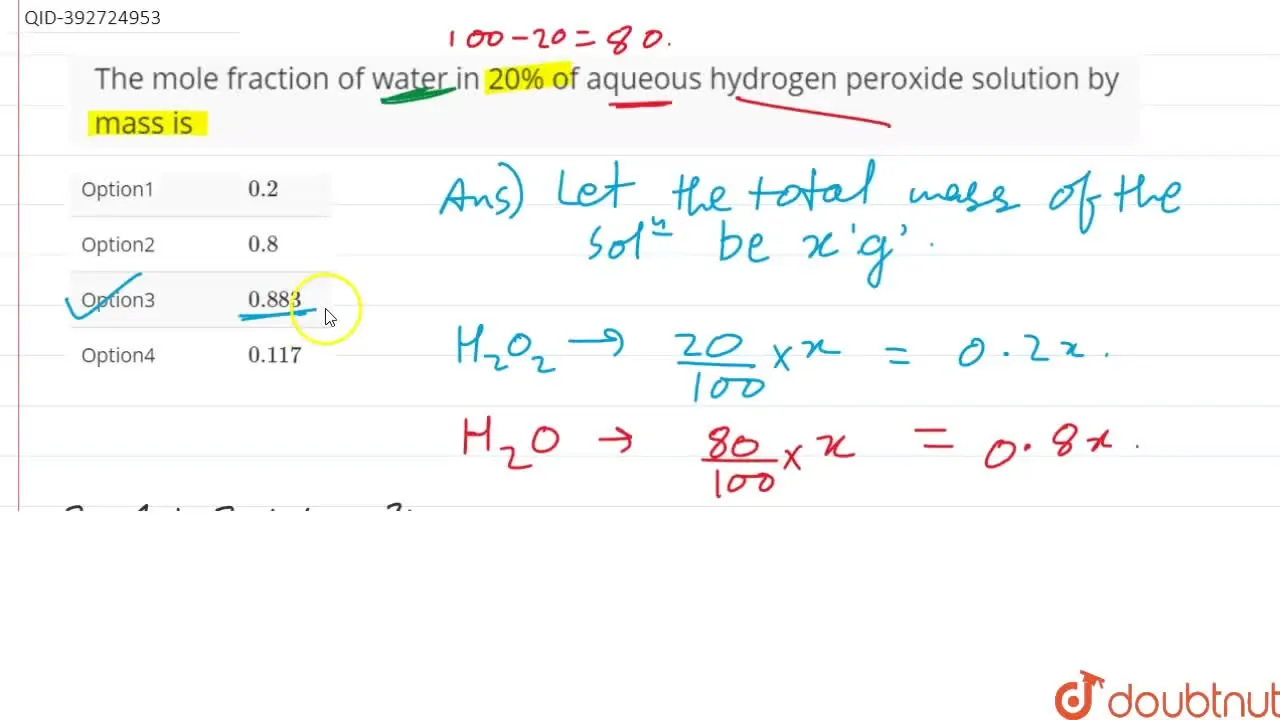 QID-392724953
100-20=80.
The mole fraction of water in 20% of aqueous hydrogen peroxide solution by
mass is
Option1 0.2
Option2 0.8
Option3 0.883
Option4 0.117
Ans) Let the total mass of the
solⁿ be x'g'.
H₂O₂ → 20/100 × x = 0.2x.
H₂O → 80/100 × x = 0.8x.
doubtnut